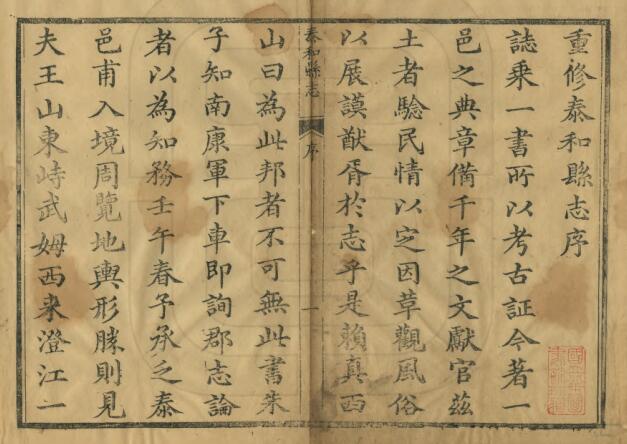 重修泰和縣志序
誌乘一書所以考古証今著一
邑之典章備千年之文獻官茲
土者驗民情以定因革觀風俗
以展謨猷胥於志乎是賴真西
泰和縣志
序
一
山曰為此邦者不可無此書朱
子知南康軍下車即詢郡志論
者以為知務壬午春予承乏泰
邑甫入境周覽地輿形勝則見
夫王山東峙武姥西來澄江一